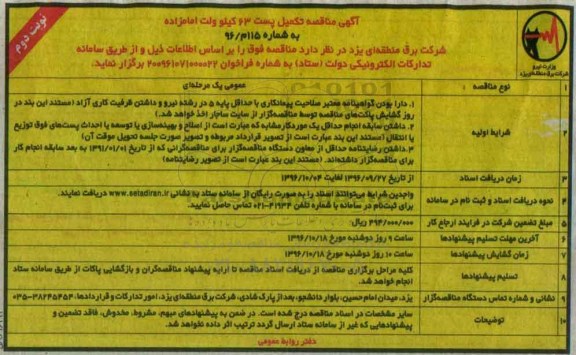 نوبت دوم
آگهی مناقصه تکمیل پست ۶۳ کیلو ولت امامزاده
به شماره ۱۱۵م/۹۶
شرکت برق منطقه‌ای یزد در نظر دارد مناقصه فوق را بر اساس اطلاعات ذیل و از طریق سامانه
تدارکات الکترونیکی دولت (ستاد) به شماره فراخوان ۲۰۰۹۶۱۰۷۱۰۰۰۰۲۲ برگزار نماید.
وزارت نیرو
شرکت برق منطقه‌ای یزد
۱ نوع مناقصه عمومی یک مرحله‌ای
۲ شرایط اولیه
۱. دارا بودن گواهینامه معتبر صلاحیت پیمانکاری با حداقل پایه ۵ در رشته نیرو و داشتن ظرفیت کاری آزاد (مستند این بند در
روز گشایش پاکت‌های مناقصه توسط مناقصه‌گزار از سایت ساجار اخذ خواهد شد.)
۲. داشتن سابقه انجام حداقل یک مورد کار مشابه که عبارت است از اصلاح و بهینه‌سازی یا توسعه یا احداث پست‌های فوق توزیع
یا انتقال (مستند این بند عبارت است از تصویر قرارداد مربوطه و تصویر صورت جلسه تحویل موقت آن)
۳. داشتن رضایتنامه حداقل از معاون دستگاه مناقصه‌گزار برای مناقصه‌گرانی که از تاریخ ۱۳۹۱/۰۱/۰۱ به بعد سابقه انجام کار
برای مناقصه‌گزار داشته‌اند. (مستند این بند عبارت است از تصویر رضایتنامه)
۳ زمان دریافت اسناد از تاریخ ۱۳۹۶/۰۹/۲۷ لغایت ۱۳۹۶/۱۰/۰۴
۴ نحوه دریافت اسناد و ثبت نام در سامانه
واجدین شرایط می‌توانند اسناد را به صورت رایگان از سامانه ستاد به نشانی www.setadiran.ir دریافت نمایند.
برای ثبت‌نام در سامانه با شماره تلفن ۴۱۹۳۴-۰۲۱ تماس حاصل نمایید.
۵ مبلغ تضمین شرکت در فرایند ارجاع کار ۴۹۴/۰۰۰/۰۰۰ ریال
۶ آخرین مهلت تسلیم پیشنهادها ساعت ۹ روز دوشنبه مورخ ۱۳۹۶/۱۰/۱۸
۷ زمان گشایش پیشنهادها ساعت ۱۰ روز دوشنبه مورخ ۱۳۹۶/۱۰/۱۸
۸ تسلیم پیشنهادها
کلیه مراحل برگزاری مناقصه از دریافت اسناد مناقصه تا ارایه پیشنهاد مناقصه‌گران و بازگشایی پاکات از طریق سامانه ستاد
انجام خواهد شد.
۹ نشانی و شماره تماس دستگاه مناقصه‌گزار یزد، میدان امام حسین، بلوار دانشجو، بعد از پارک شادی، شرکت برق منطقه‌ای یزد، امور تدارکات و قراردادها، ۳۸۲۴۵۴۵۴-۰۳۵
۱۰ توضیحات
سایر مشخصات در اسناد مناقصه درج شده است. در ضمن به پیشنهادهای مبهم، مشروط، مخدوش، فاقد تضمین و
پیشنهادهایی که غیر از سامانه ستاد ارسال گردد ترتیب اثر داده نخواهد شد.
دفتر روابط عمومی